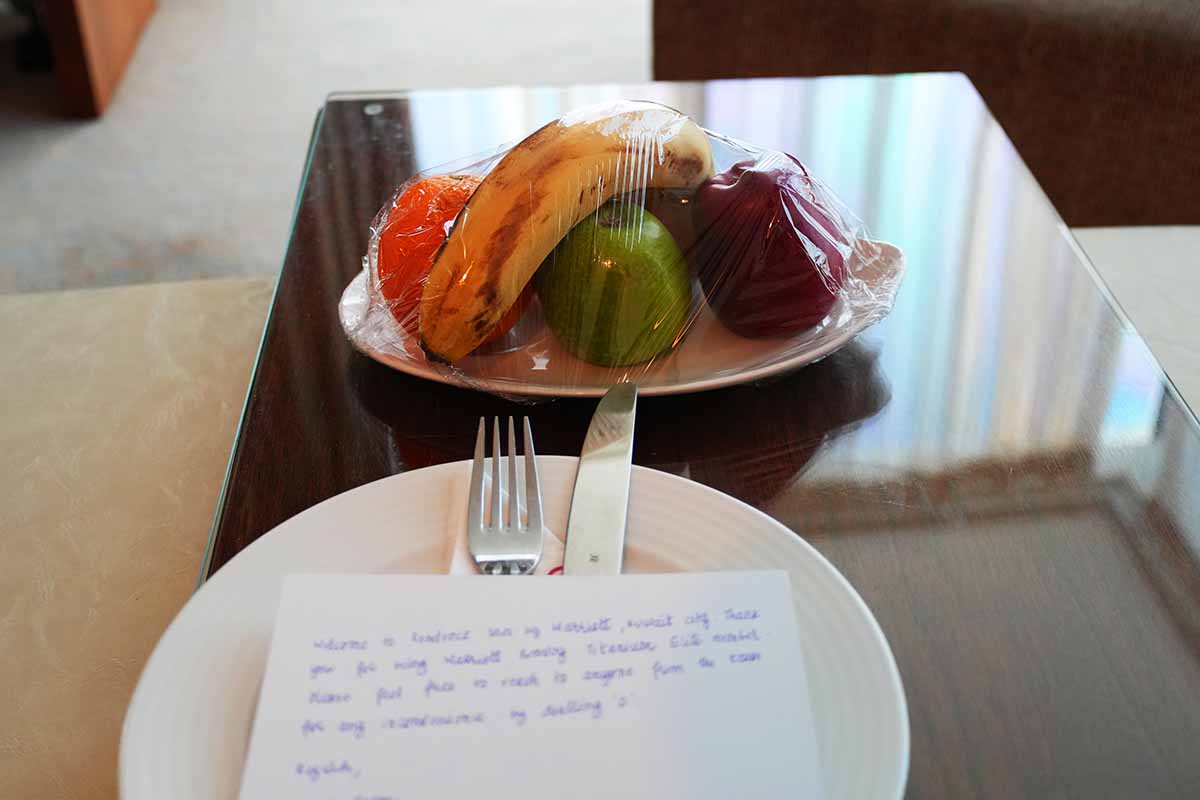 Welcome to Residence Inn by Marriott, Kuwait City. Thank
you for being Marriott Bonvoy Titanium Elite member.
Please feel free to reach to anyone from the team
for any inconvenience by dialling '0'.
Regards,